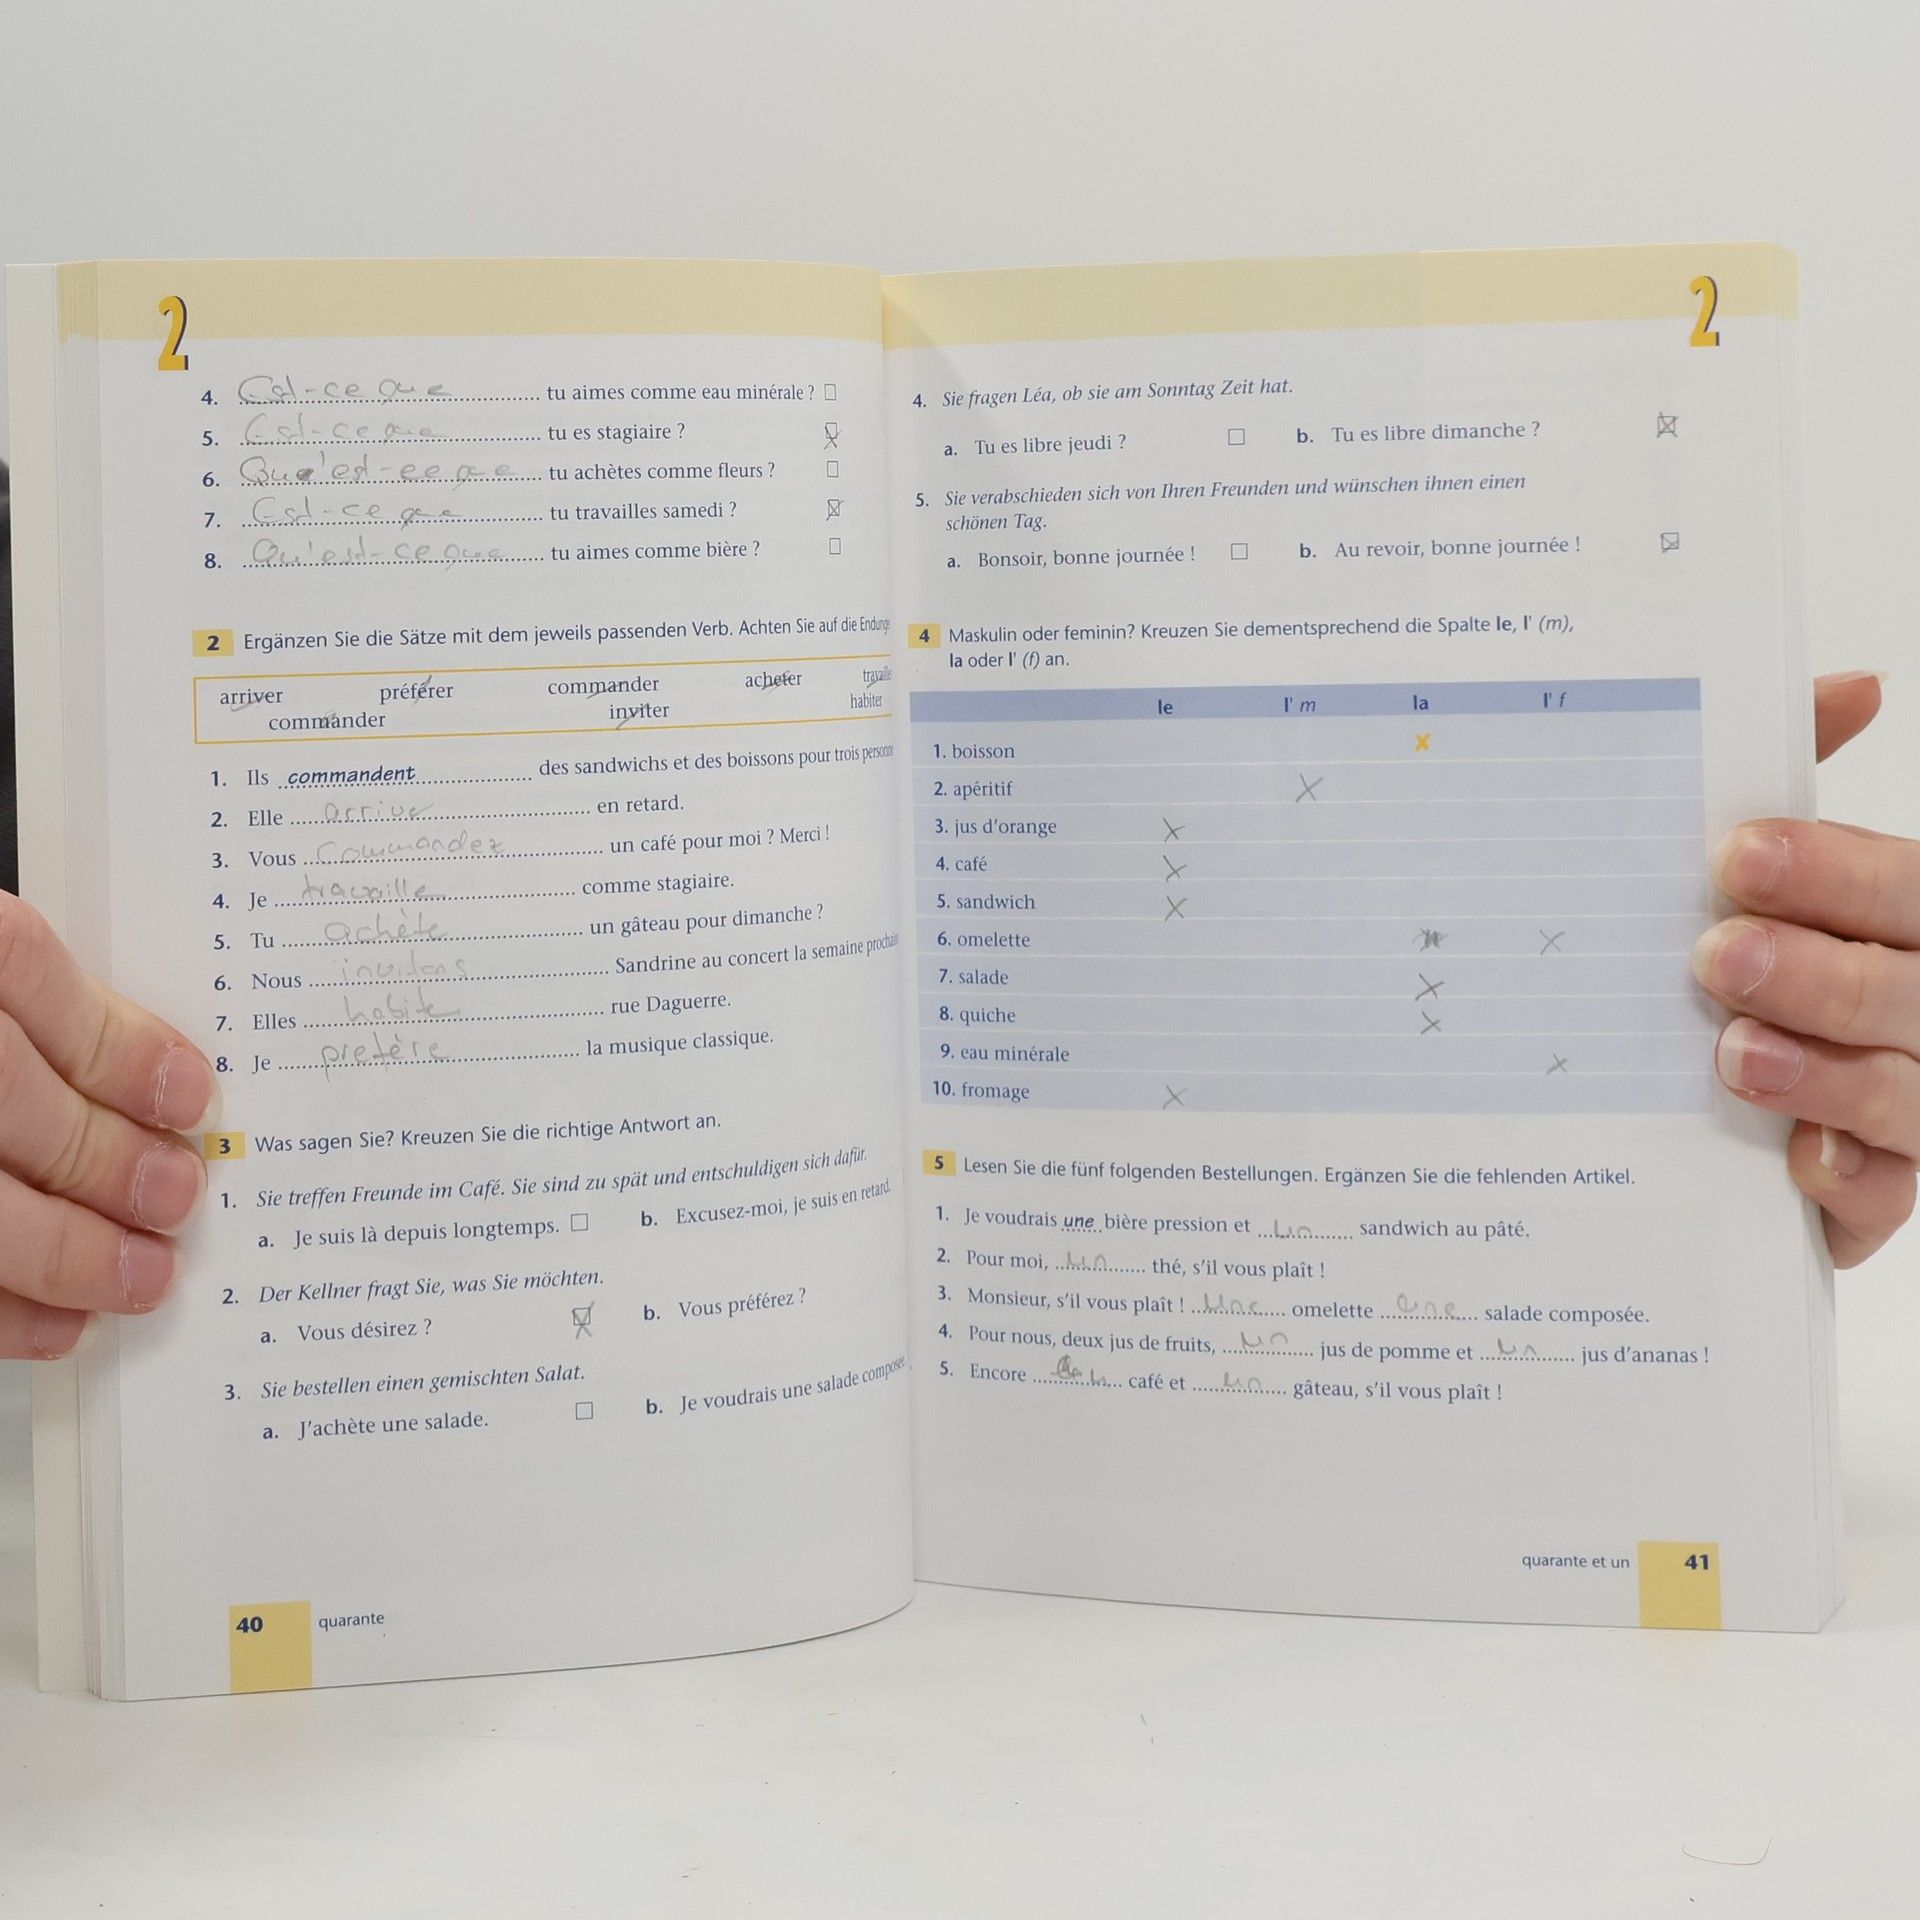 2
4. Est-ce que tu aimes comme eau minérale ?
5. Est-ce que tu es stagiaire ?
6. Qu'est-ce que tu achètes comme fleurs ?
7. Est-ce que tu travailles samedi ?
8. Qu'est-ce que tu aimes comme bière ?
2 Ergänzen Sie die Sätze mit dem jeweils passenden Verb. Achten Sie auf die
arriver préférer commander acheter
commander inviter habiter
1. Ils commandent des sandwichs et des boissons pour trois
2. Elle arrive en retard.
3. Vous Commandez un café pour moi ? Merci !
4. Je travaille comme stagiaire.
5. Tu achète un gâteau pour dimanche ?
6. Nous invitons Sandrine au concert la semaine
7. Elles habite rue Daguerre.
8. Je prefère la musique classique.
3 Was sagen Sie? Kreuzen Sie die richtige Antwort an.
1. Sie treffen Freunde im Café. Sie sind zu spät und entschuldigen sich dafür.
a. Je suis là depuis longtemps. b. Excusez-moi, je suis en retard.
2. Der Kellner fragt Sie, was Sie möchten.
a. Vous désirez ? b. Vous préférez ?
3. Sie bestellen einen gemischten Salat.
a. J'achète une salade. b. Je voudrais une salade
40 quarante
2
4. Sie fragen Léa, ob sie am Sonntag Zeit hat.
a. Tu es libre jeudi ? b. Tu es libre dimanche ?
5. Sie verabschieden sich von Ihren Freunden und wünschen ihnen einen
schönen Tag.
a. Bonsoir, bonne journée ! b. Au revoir, bonne journée !
4 Maskulin oder feminin? Kreuzen Sie dementsprechend die Spalte le, l' (m),
la oder l' (f) an.
le l' m la l' f
1. boisson
2. apéritif
3. jus d'orange
4. café
5. sandwich
6. omelette
7. salade
8. quiche
9. eau minérale
10. fromage
5 Lesen Sie die fünf folgenden Bestellungen. Ergänzen Sie die fehlenden Artikel.
1. Je voudrais une bière pression et un sandwich au pâté.
2. Pour moi, un thé, s'il vous plaît !
3. Monsieur, s'il vous plaît ! une omelette une salade composée.
4. Pour nous, deux jus de fruits, un jus de pomme et un jus d'ananas !
5. Encore café et un gâteau, s'il vous plaît !
quarante et un 41